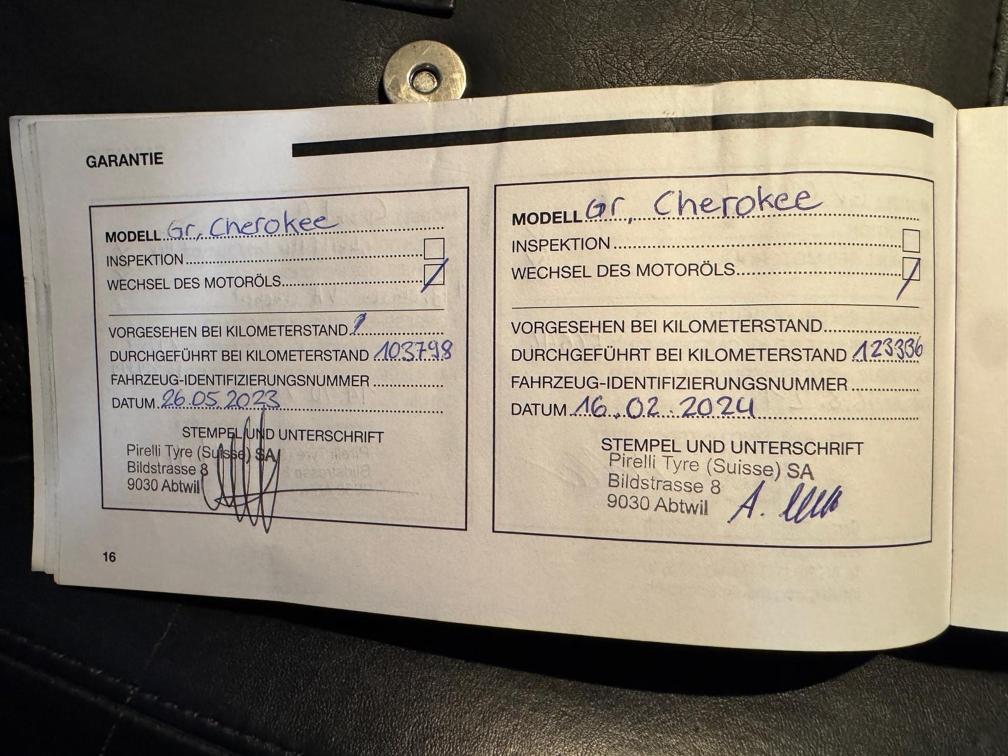 GARANTIE
MODELL Gr, Cherokee
INSPEKTION
WECHSEL DES MOTORÖLS
VORGESEHEN BEI KILOMETERSTAND
DURCHGEFÜHRT BEI KILOMETERSTAND 103798
FAHRZEUG-IDENTIFIZIERUNGSNUMMER
DATUM 26.05.2023
STEMPEL UND UNTERSCHRIFT
Pirelli Tyre (Suisse) SA
Bildstrasse 8
9030 Abtwil
16
MODELL Gr, Cherokee
INSPEKTION
WECHSEL DES MOTORÖLS
VORGESEHEN BEI KILOMETERSTAND
DURCHGEFÜHRT BEI KILOMETERSTAND 123336
FAHRZEUG-IDENTIFIZIERUNGSNUMMER
DATUM 16.02.2024
STEMPEL UND UNTERSCHRIFT
Pirelli Tyre (Suisse) SA
Bildstrasse 8
9030 Abtwil A.